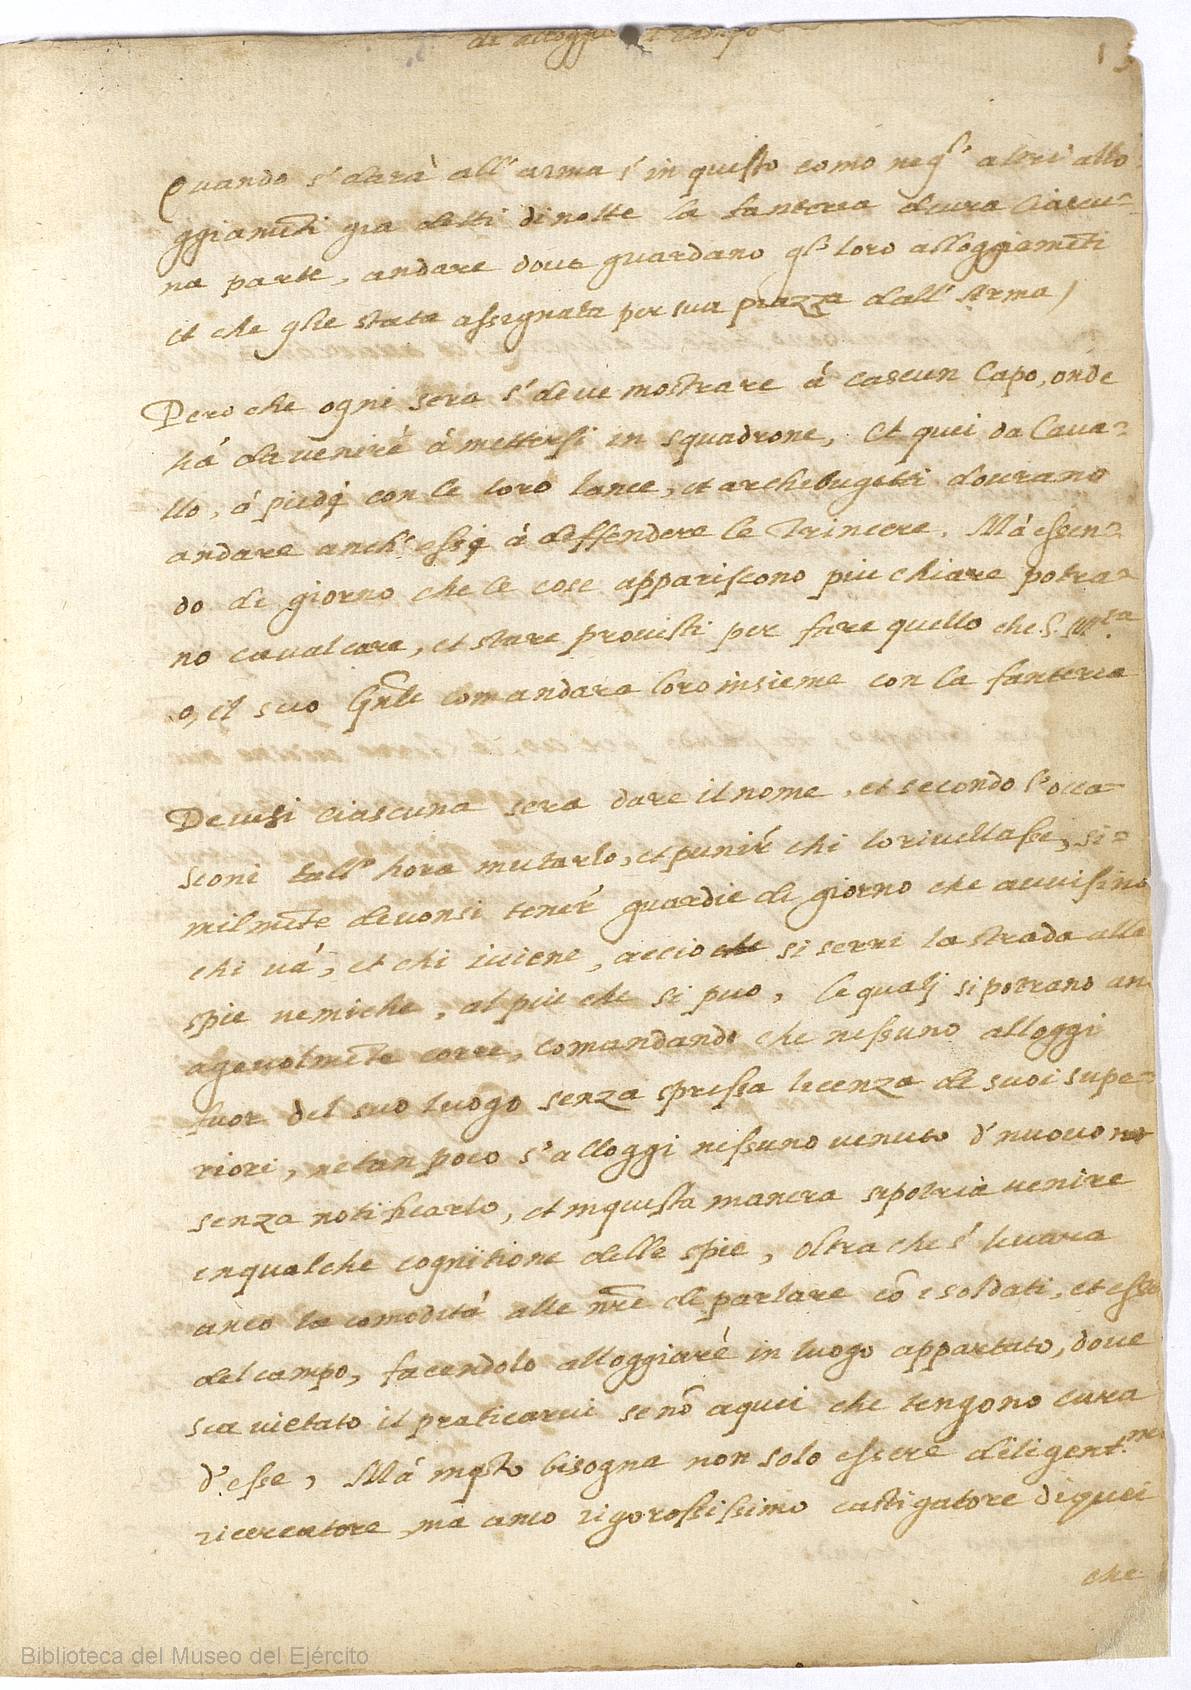 di alloggiare il campo
13
Quando s' darà all' arma s' in questo como neqsti altri allo
ggiamẽti gia detti di notte la fanteria dovra ciascu=
na parte, andare dove guardano qsti loro alloggiamẽti
et che glie stata assignata per sua piazza dall' Arma,
Pero che ogni sera s' deve mostrare á cascun Capo, onde
há da venire á mettersi in squadrone, Et quei da Cava=
llo, á piedi con le loro lance, et archebugetti dourano
andare anch' essi á deffendere le Trincere. Má essen=
do di giorno che le cose appariscono piu chiare potra=
no cavalcare, et stare provisti per fare quello che S. Mta
o, il suo Gñle comandara loro insieme con la fanteria
Devesi ciascuna sera dare il nome, et secondo l'occa=
sioni tall' hora mutarlo, et punir chi lo rivellasse, si=
milmẽte devonsi tener guardie di giorno che avvisino
chi vá, et chi iviene, accio che si serri la strada alle
spie nemiche, al piu che si puo, le quali si potrano an
agevolmẽte corre, comandando che nessuno alloggi
fuor del suo luogo senza spressa licenza di suoi supe=
riori, ne tan poco s'alloggi nessuno venuto d' nuovo
senza notificarlo, et inquesta manera si potria venire
inqualche cognitione delle spie, oltra che s' levara
anco la comodità alle nr̃e di parlare cõ i soldati, et esse
del campo, facendolo alloggiare in luogo appartato, dove
sia vietato il praticarvi se nõ aquei che tengono cura
d'esse, Má inqsto bisogna non solo essere diligentme
ricercatore, ma anco rigorossissimo castigatore di quei
che
Biblioteca del Museo del Ejército